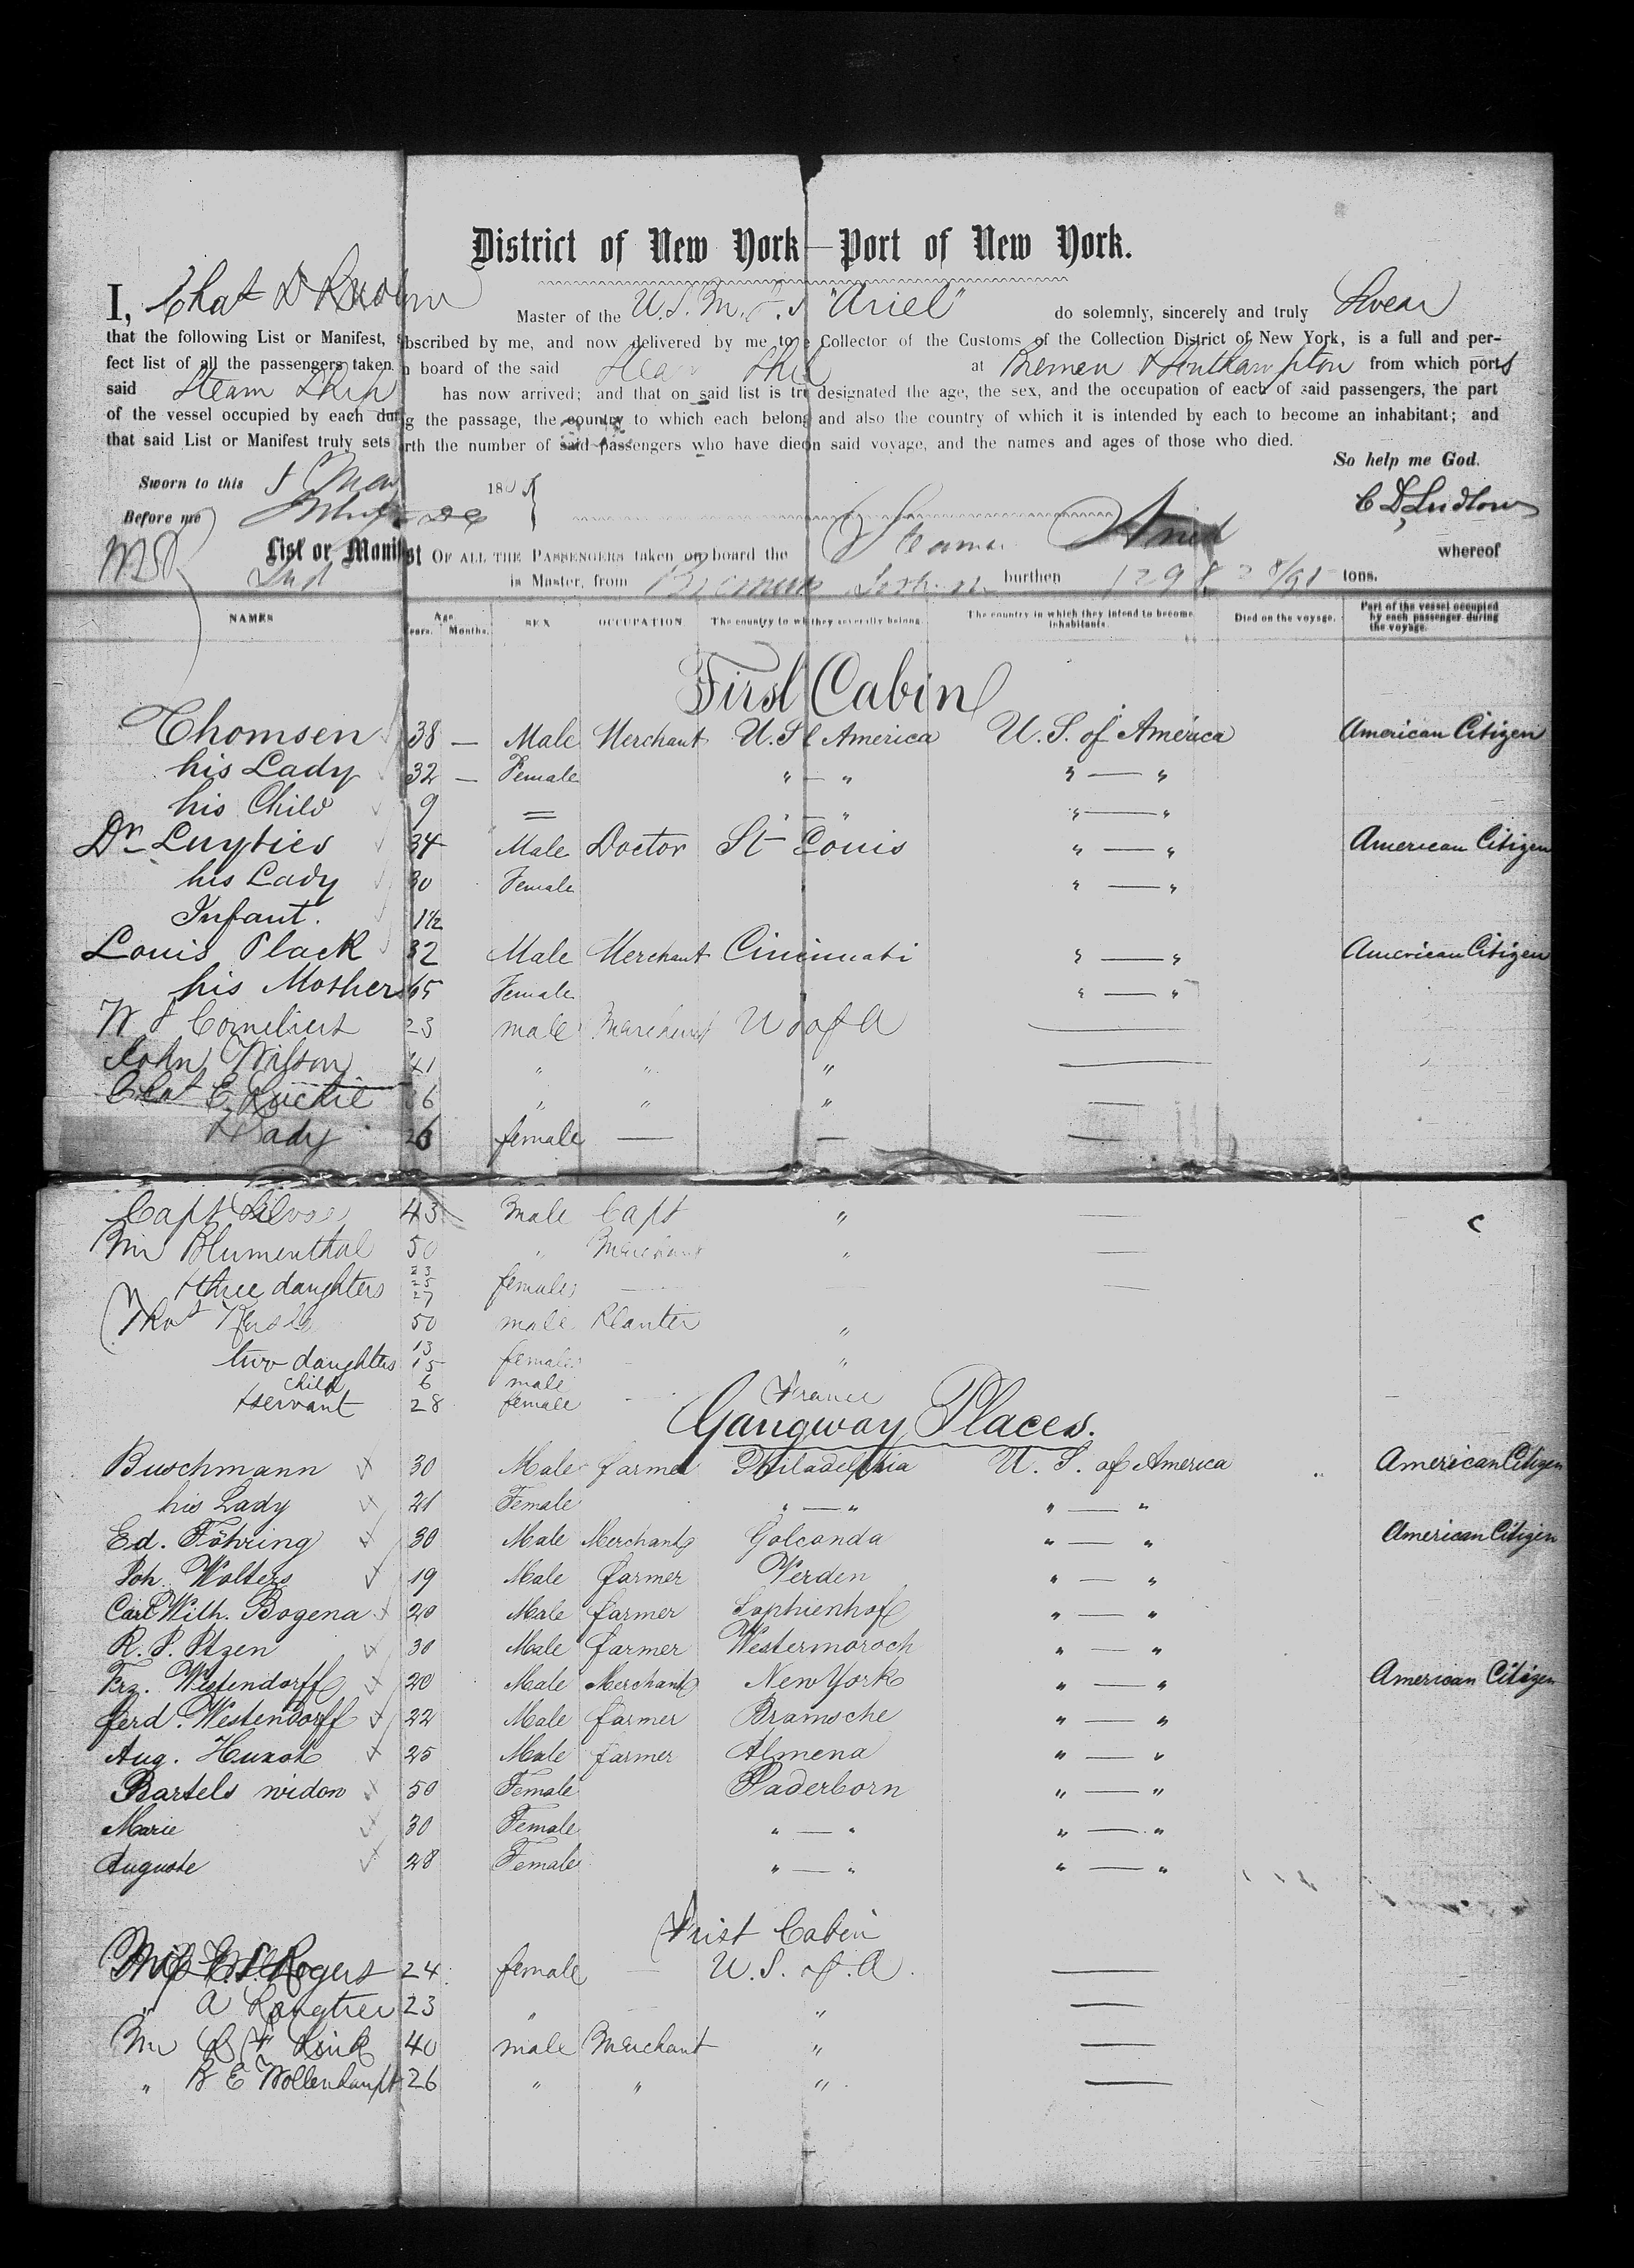 District of New York—Port of New York.
I, Chas D Ludlow Master of the U.S.M.S.S "Ariel" do solemnly, sincerely and truly Swear
that the following List or Manifest, subscribed by me, and now delivered by me to e Collector of the Customs of the Collection District of New York, is a full and per-
fect list of all the passengers taken n board of the said Steam Ship at Bremen & Southampton from which ports
said Steam Ship has now arrived; and that on said list is tru designated the age, the sex, and the occupation of each of said passengers, the part
of the vessel occupied by each during the passage, the country to which each belong and also the country of which it is intended by each to become an inhabitant; and
that said List or Manifest truly sets orth the number of said passengers who have died on said voyage, and the names and ages of those who died.
So help me God.
Sworn to this May 185
Before me
C D Ludlow
List or Manifest OF ALL THE PASSENGERS taken on board the Steamer Ariel whereof
is Master, from Bremen burthen 1295 tons.
NAMES Age Years. Months. SEX OCCUPATION The country to wh they severally belong. The country in which they intend to become inhabitants. Died on the voyage. Part of the vessel occupied by each passenger during the voyage.
First Cabin
Thomsen 38 — Male Merchant U.S. America U.S. of America American Citizen
his Lady 32 — Female " — " " — "
his Child 9 = " — " " — "
Dr Luyties 34 Male Doctor St Louis " — " American Citizen
his Lady 30 Female " — "
Infant. 1 1/2
Louis Plack 32 Male Merchant Cincinnati " — " American Citizen
his Mother 65 Female " — "
W F Cornelius 23 male Merchant U S of A —
John Wilson 41 " " " —
Chas E 36 " " " —
& Lady 26 female — — —
Capt 43 male Capt " —
Mr Blumenthal 50 " Merchant " —
& three daughters 23 25 27 females — —
Thos 50 male Planter "
two daughters 13 15 females "
child 6 male
& servant 28 female France
Gangway Places.
Buschmann 30 Male farmer Philadelphia U. S. of America American Citizen
his Lady 21 Female " — " " — "
Ed. Föhring 30 Male Merchant Golconda " — " American Citizen
Joh. Wolters 19 Male farmer Verden " — "
Carl Wilh. Bogena 20 Male farmer Sophienhof " — "
R. P. Itzen 30 Male farmer Westermoroch " — "
Frz. Westendorff 20 Male Merchant New York " — " American Citizen
ferd. Westendorff 22 Male farmer Bramsche " — "
Aug. Huxoh 25 Male farmer Almena " — "
Bartels widow 50 Female Paderborn " — "
Marie 30 Female " — " " — "
Auguste 28 Female " — " " — "
First Cabin
Miss Rogers 24 female — U. S. of A. —
" A Langtier 23 " " —
Mr Link 40 male Merchant " —
" B E Wollenhaupt 26 " " " —